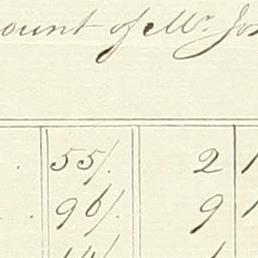 ount of Mr. Jo
55/. 2 1
96/. 9 1